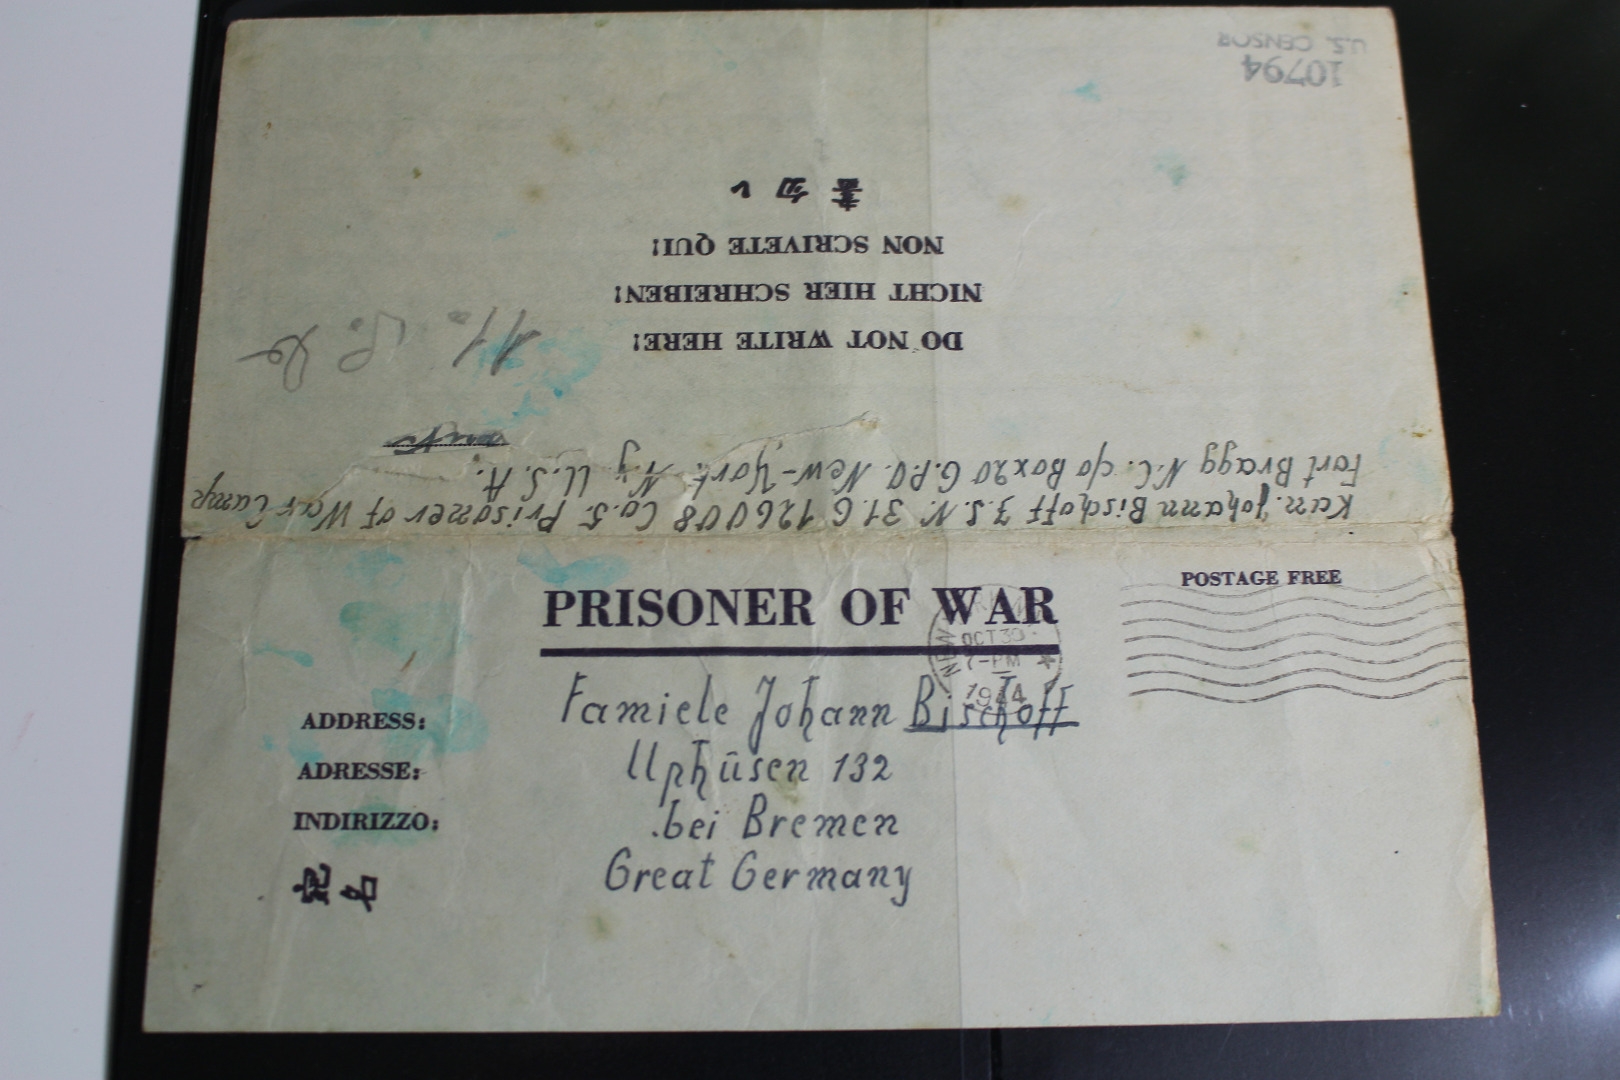 10794
U.S. CENSOR
書 切 い
NON SCRIVETE QUI!
NICHT HIER SCHREIBEN!
DO NOT WRITE HERE!
Fort Bragg N.C. c/o Box 20 G.P.O. New-York. N.Y U.S.A.
Kan. Johann Bischoff J.S.N. 31.G 126008 Co.5. Prisoner of War Camp
PRISONER OF WAR
POSTAGE FREE
NEW YORK, N.Y.
OCT 30
7-PM
1944
ADDRESS:
ADRESSE:
INDIRIZZO:
宛 名
Famiele Johann Bischoff
Uphüsen 132
.bei Bremen
Great Germany